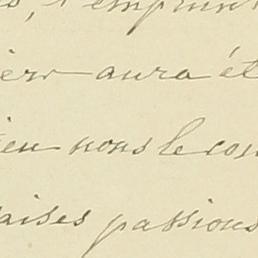 s, l'emprunt
ier aura ét
ieu nous le con
aises passions